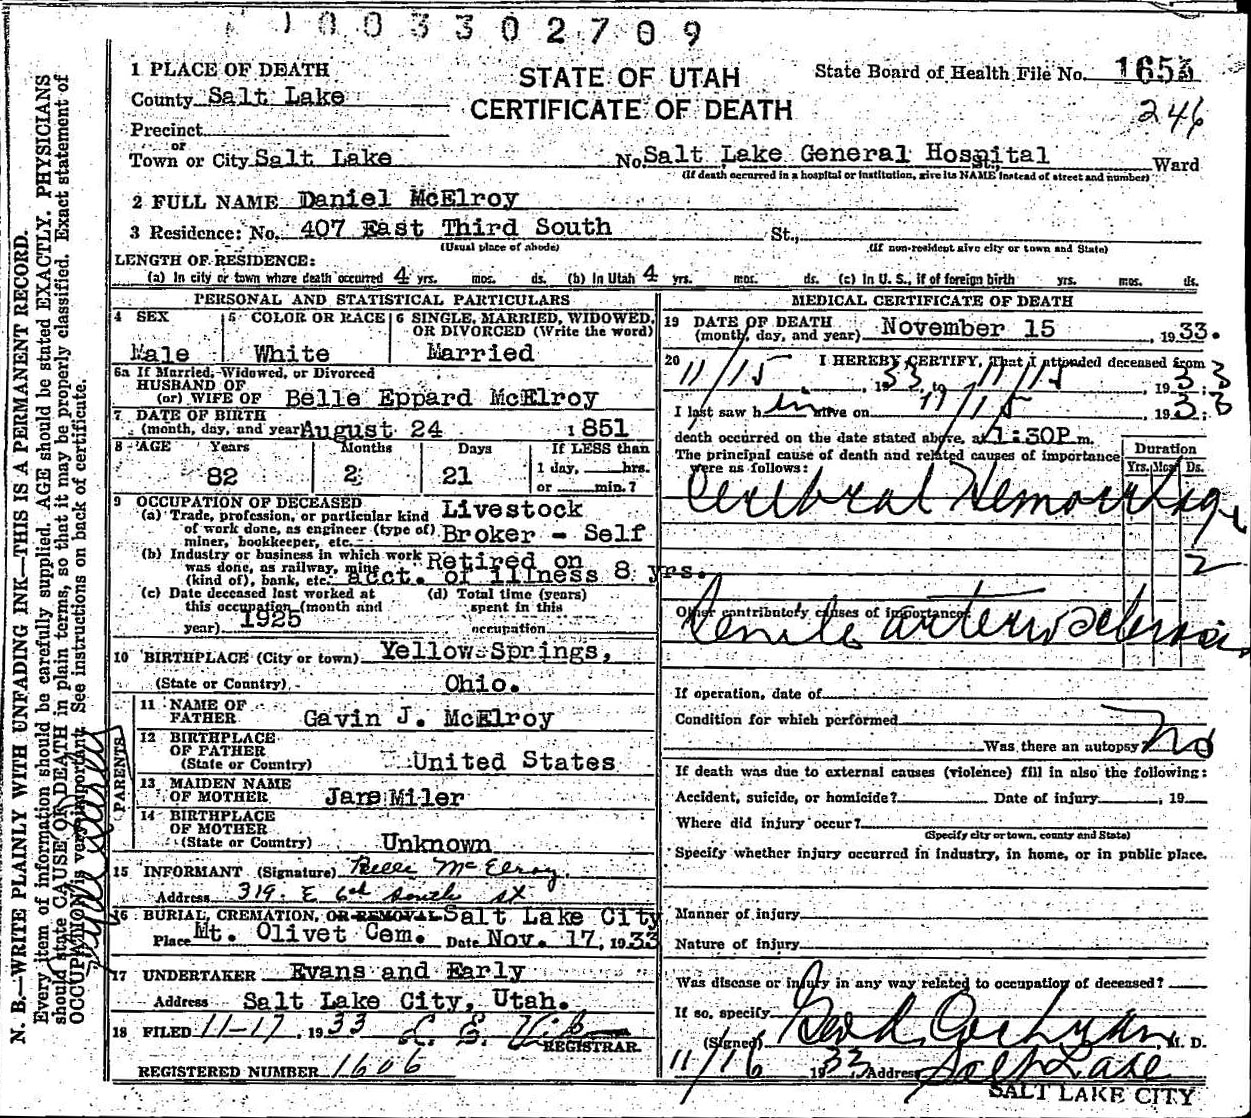 1003302709
1 PLACE OF DEATH
County Salt Lake
Precinct
or
Town or City Salt Lake
STATE OF UTAH
CERTIFICATE OF DEATH
State Board of Health File No. 1653
246
No. Salt Lake General Hospital St., Ward
(If death occurred in a hospital or institution, give its NAME instead of street and number)
2 FULL NAME Daniel McElroy
3 Residence: No. 407 East Third South St.,
(Usual place of abode) (If non-resident give city or town and State)
LENGTH OF RESIDENCE:
(a) In city or town where death occurred 4 yrs. mos. ds. (b) In Utah 4 yrs. mos. ds. (c) In U. S., if of foreign birth yrs. mos. ds.
PERSONAL AND STATISTICAL PARTICULARS
4 SEX
Male
5 COLOR OR RACE
White
6 SINGLE, MARRIED, WIDOWED, OR DIVORCED (Write the word)
Married
6a If Married, Widowed, or Divorced
HUSBAND OF
(or) WIFE OF Belle Eppard McElroy
7 DATE OF BIRTH
(month, day, and year) August 24 1851
8 AGE Years Months Days If LESS than
82 2 21 1 day, hrs.
or min.?
9 OCCUPATION OF DECEASED
(a) Trade, profession, or particular kind of work done, as engineer (type of) miner, bookkeeper, etc. Livestock Broker - Self
(b) Industry or business in which work was done, as railway, mine (kind of), bank, etc. Retired on acct. of illness 8 yrs.
(c) Date deceased last worked at this occupation (month and year) 1925
(d) Total time (years) spent in this occupation
10 BIRTHPLACE (City or town) Yellow Springs,
(State or Country) Ohio.
PARENTS
11 NAME OF FATHER Gavin J. McElroy
12 BIRTHPLACE OF FATHER
(State or Country) United States
13 MAIDEN NAME OF MOTHER Jare Miler
14 BIRTHPLACE OF MOTHER
(State or Country) Unknown
15 INFORMANT (Signature) Belle McElroy.
Address 319. E 6th South St
16 BURIAL, CREMATION, OR REMOVAL Salt Lake City
Place Mt. Olivet Cem. Date Nov. 17, 1933
17 UNDERTAKER Evans and Early
Address Salt Lake City, Utah.
18 FILED 11-17, 1933
REGISTRAR.
REGISTERED NUMBER 1606
MEDICAL CERTIFICATE OF DEATH
19 DATE OF DEATH
(month, day, and year) November 15, 1933.
20 I HEREBY CERTIFY, That I attended deceased from
11/15, 1933 to 11/15, 1933
I last saw him alive on 11/15 1933
death occurred on the date stated above, at 1:30P m.
The principal cause of death and related causes of importance were as follows:
Duration
Yrs. Mos. Ds.
Cerebral Hemorrhage
2
Other contributory causes of importance
Senile arteriosclerosis
If operation, date of
Condition for which performed
Was there an autopsy? No
If death was due to external causes (violence) fill in also the following:
Accident, suicide, or homicide? Date of injury, 19
Where did injury occur?
(Specify city or town, county and State)
Specify whether injury occurred in industry, in home, or in public place.
Manner of injury
Nature of injury
Was disease or injury in any way related to occupation of deceased?
If so, specify
(Signed) Cochran, M. D.
11/16 1933 Address Salt Lake
SALT LAKE CITY
N. B.—WRITE PLAINLY WITH UNFADING INK—THIS IS A PERMANENT RECORD.
Every item of information should be carefully supplied. AGE should be stated EXACTLY. PHYSICIANS
should state CAUSE OF DEATH in plain terms, so that it may be properly classified. Exact statement of
OCCUPATION is very important. See instructions on back of certificate.